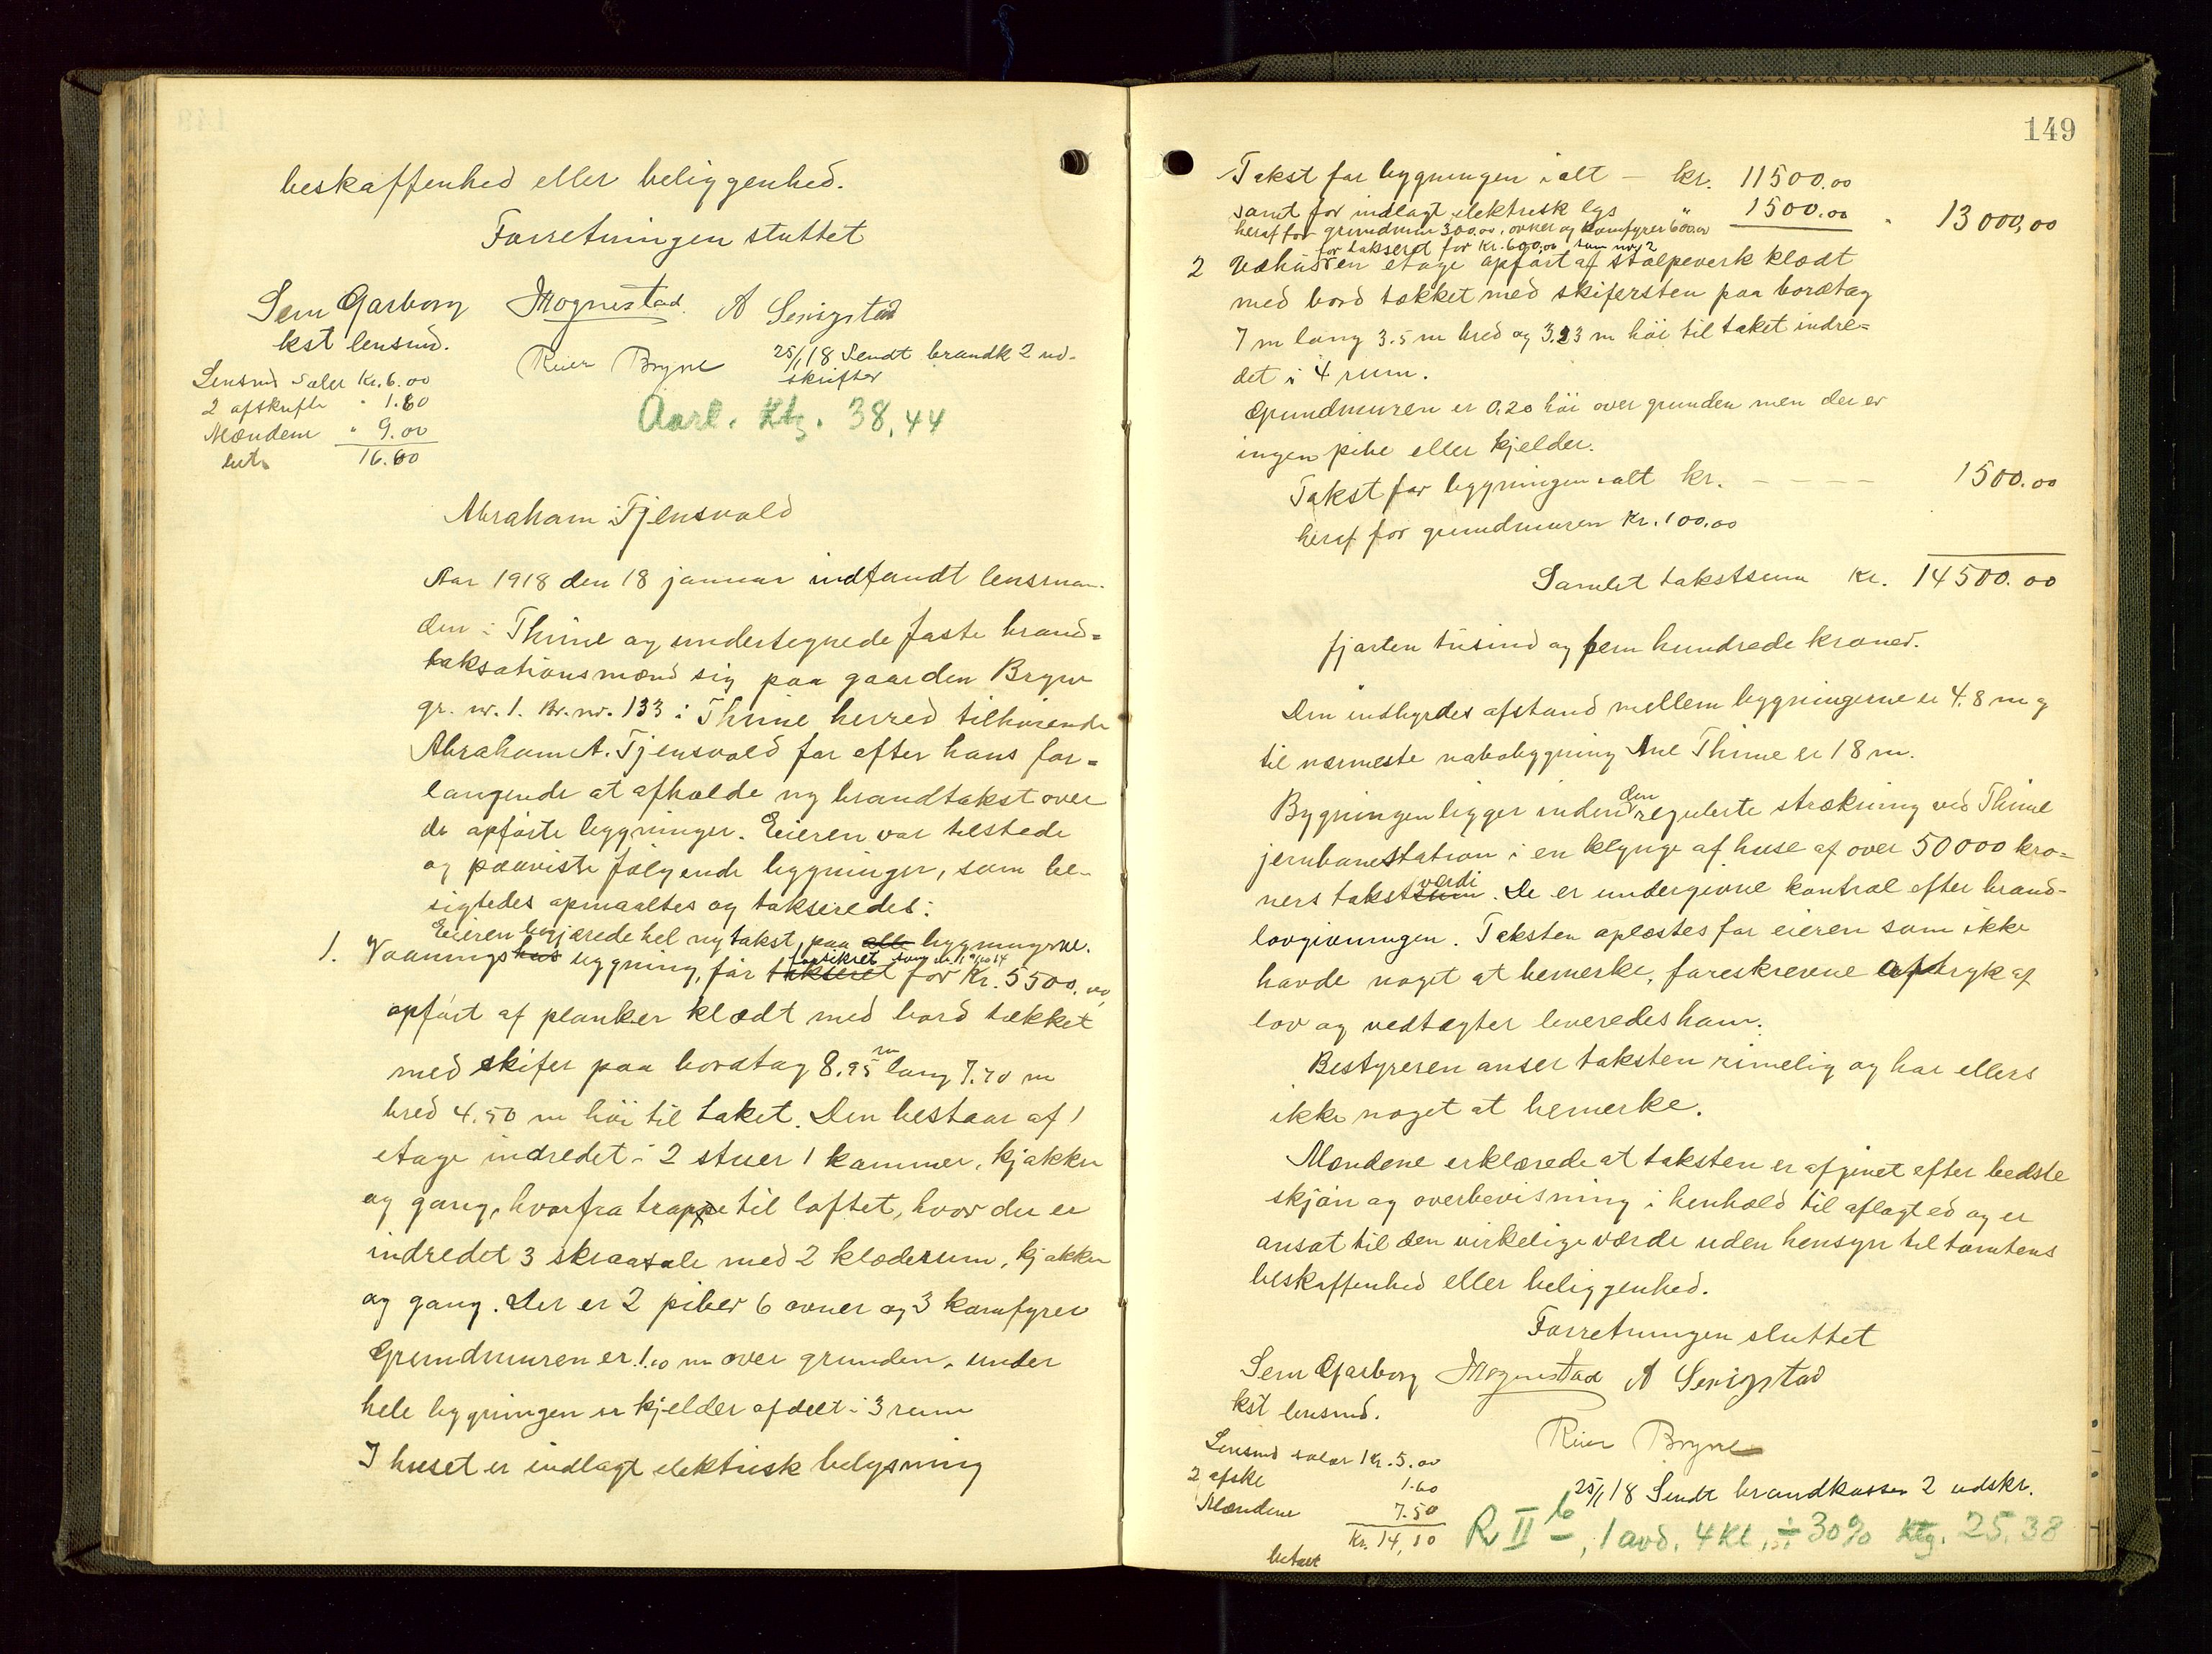 beskaffenhed eller beliggenhed.
Forretningen sluttet
Sem Garborg Mognestad. A Serigstad
kst lensmd.
Reier Bryne 25/1 18 Sendt brandk 2 ud-
skrifter
Lensmd salær Kr. 6.00
2 afskrifter " 1.60
Mændene " 9.00
bet. 16.60
Aarl. Ktg. 38,44
Abraham Tjensvold
Aar 1918 den 18 januar indfandt lensman-
den i Thime og undertegnede faste brand=
taksationsmænd sig paa gaarden Bryne
gr. nr. 1. Br. nr. 133 i Thime herred tilhørende
Abraham A. Tjensvold for efter hans for=
langende at afholde ny brandtakst over
de opførte bygninger. Eieren var tilstede
og paaviste følgende bygninger, som be-
sigtedes opmaaltes og takseredes:
Eieren begjærede hel ny takst, paa alle bygningerne.
1. Vaaningshus bygning, før takseret forsikret som nr. 1 for Kr. 5500.00,
opført af planker klædt med bord tækket
med skifer paa bordtag 8.95 m lang 7.70 m
bred 4.50 m høi til taket. Den bestaar af 1
etage indredet i 2 stuer 1 kammer, kjøkken
og gang, hvorfra trappe til loftet, hvor der er
indredet 3 skraasale med 2 klæderum, kjøkken
og gang. Der er 2 piber 6 ovner og 3 komfyrer
Grundmuren er 1.10 m over grunden, under
hele bygningen er kjelder afdelt i 3 rum
I huset er indlagt elektrisk belysning
149
Takst for bygningen ialt - kr. 11500.00
samt for indlagt elektrisk lys " 1500.00 " 13000,00
heraf for grundmur 300.00, ovner og komfyrer 600.00
før takseret for Kr. 600,00 som nr. 2
2 Vedhus en etage opført af stolpeverk klædt
med bord tækket med skifersten paa bordtag
7 m lang 3.5 m bred og 3.23 m høi til taket indre=
det i 4 rum.
Grundmuren er 0.20 høi over grunden men der er
ingen pibe eller kjelder.
Takst for bygningen ialt kr. - - - - 1500.00
heraf for grundmuren Kr. 100.00
Samlet takstsum Kr. 14500.00
fjorten tusind og fem hundrede kroner.
Den indbyrdes afstand mellem bygningerne er 4.8 m og
til nærmeste nabobygning Ane Thime er 18 m.
Bygningen ligger inden den regulerte strækning ved Thime
jernbanestation i en klynge af huse af over 50000 kro=
ners takstsum værdi. De er undergivne kontrol efter brand-
lovgivningen. Taksten oplæstes for eieren som ikke
havde noget at bemerke, foreskrevne aftryk af
lov og vedtægter leveredes ham.
Bestyreren anser taksten rimelig og har ellers
ikke noget at bemerke.
Mændene erklærede at taksten er afgivet efter bedste
skjøn og overbevisning i henhold til aflagt ed og er
ansat til den virkelige værde uden hensyn til tomtens
beskaffenhed eller beliggenhed.
Forretningen sluttet
Sem Garborg Mognestad A Serigstad
kst lensmd.
Reier Bryne
Lensmd salær Kr. 5.00
2 afskr 1.60
Mændene 7.50
Kr. 14,10
betalt
25/1 18 Sendt brandkassen 2 udskr.
R II 6 -, 1 avd. 4 Kl. ÷ 30% Ktg. 25,38